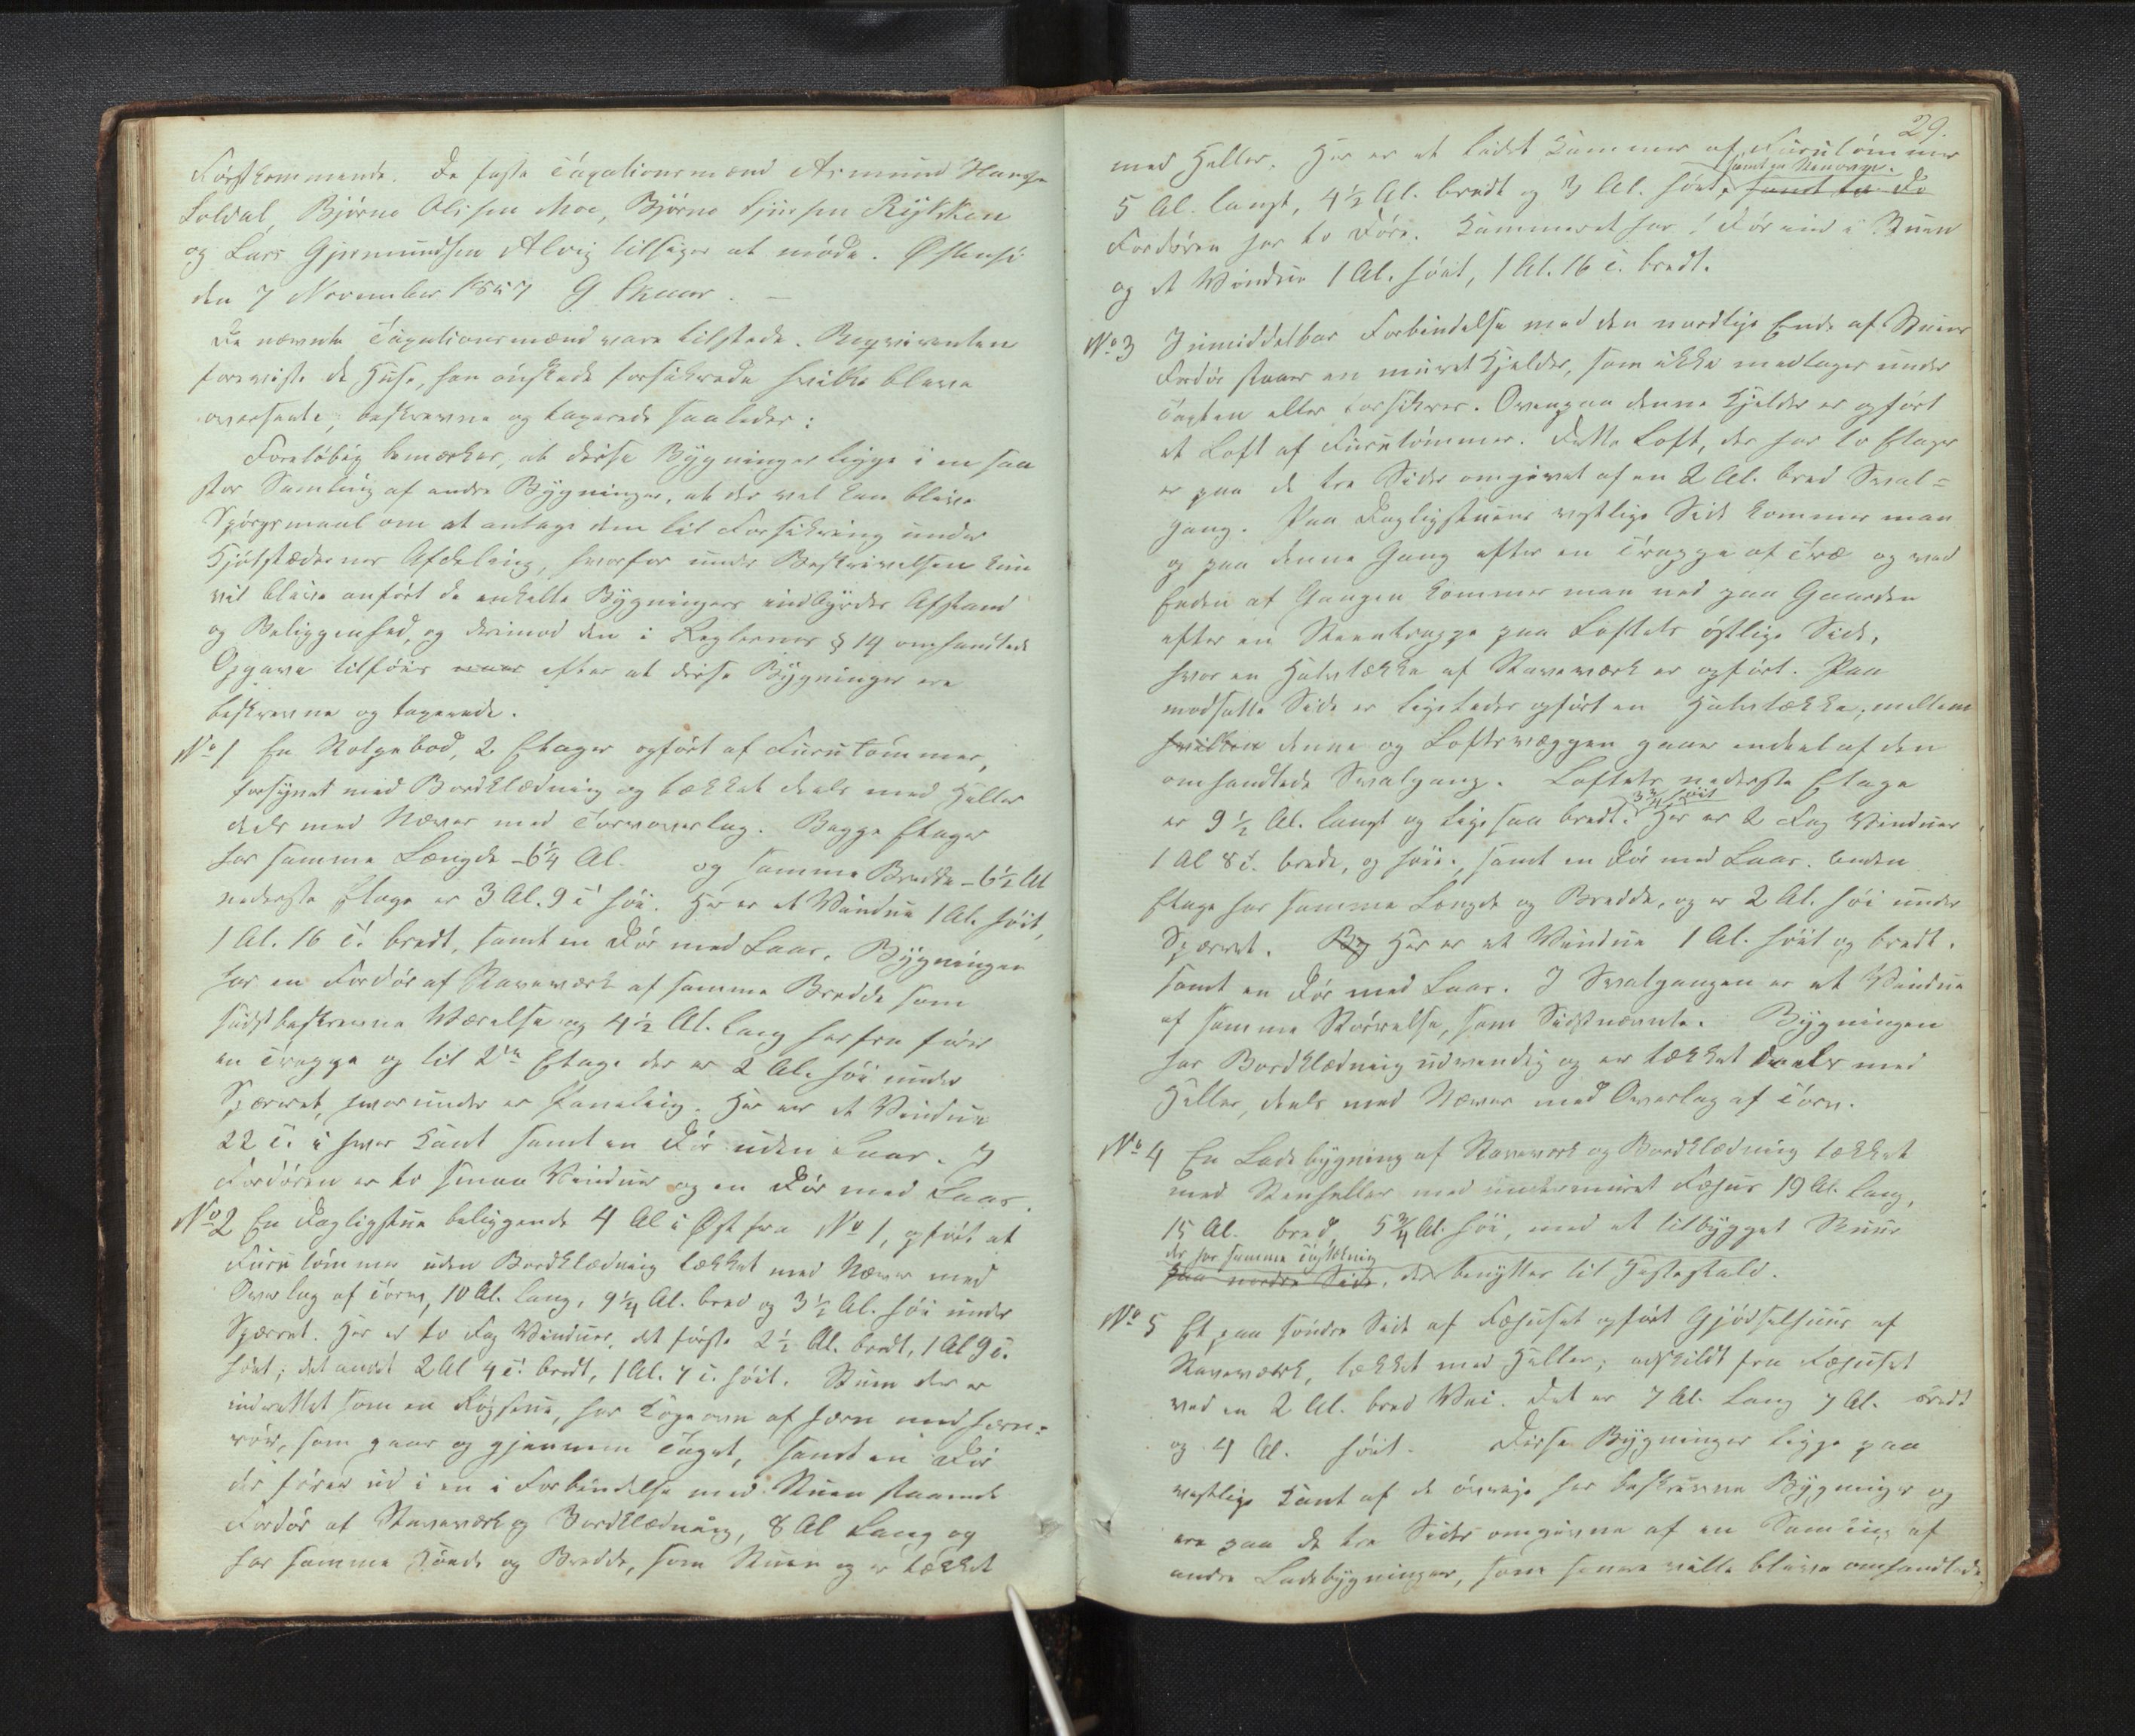 Førstkommende. De faste Taxationsmænd Asmund Hansen
Soldal, Bjørne Olsen Moe, Bjørne Sjursen Rykken
og Lars Gjermundsen Alvig tilsiges at møde. Østensø
den 7 November 1857 G Skaar. —
De nævnte Taxationsmænd vare tilstede. Reqvirenten
foreviste de Huse, han ønskede forsikrede hvilke bleve
overseete, beskrevne og taxerede saaledes:
Foreløbig bemærkes, at disse Bygninger ligge i en saa
stor Samling af andre Bygninger, at der vel kan blive
Spørgsmaal om at antage dem til Forsikring under
Kjøbstædernes Afdeling, hvorfor under Beskrivelsen kun
vil blive anført de enkelte Bygningers indbyrdes Afstand
og Beliggenhed, og derimod den i Reglernes § 14 omhandlede
Opgave tilføies efter at disse Bygninger ere
beskrevne og taxerede.
No 1 En Stolpebod, 2 Etager opført af Furutømmer,
forsynet med Bordklædning og tækket deels med Heller
deels med Næver med Torvoverlag. Begge Etager
har samme Længde - 6¼ Al. og samme Bredde - 6½ Al
nederste Etage er 3 Al. 9 T. høi. Her er et Vindue 1 Al. høit,
1 Al. 16 T. bredt, samt en Dør med Laas. Bygningen
har en Fordør af Staveværk af samme Bredde som
sidstbeskrevne Værelse og 4½ Al. lang herfra fører
en Trappe op til 2den Etage der er 2 Al. høi under
Spærret, hvorunder er Paneling. Her er et Vindue
22 T. i hver Kant samt en Dør uden Laas. I
Fordøren er to smaa Vinduer og en Dør med Laas.
No 2 En Dagligstue beliggende 4 Al i Øst fra No 1, opført af
Furutømmer uden Bordklædning tækket med Næver med
Overlag af Torv, 10 Al. lang, 9¼ Al. bred og 3½ Al. høi under
Spærret. Her er to Fag Vinduer, det første 2½ Al. bredt, 1 Al 9 T.
høit; det andet 2 Al 4 T. bredt, 1 Al. 7 T. høit. Stuen der er
indrettet som en Røgstue, har Kogeovn af Jern med Jern-
rør, som gaar op gjennem Taget, samt en Dør
der fører ud i en i Forbindelse med Stuen staaende
Fordør af Staveværk og Bordklædning, 8 Al lang og
har samme Høide og Bredde, som Stuen og er tækket
29.
med Heller. Her er et lidet Kammer af Furutømmer
samt en Steenovn.
5 Al. langt, 4½ Al. bredt og 3 Al. høit, samt to Do
Fordøren har to Døre. Kammeret har 1 Dør ind i Stuen
og et Vindue 1 Al. høit, 1 Al. 16 T. bredt.
No 3 I umiddelbar Forbindelse med den nordlige Ende af Stuens
Fordør staaer en muret Kjelder, som ikke medtages under
Taxten eller forsikres. Ovenpaa denne Kjelder er opført
et Loft af Furutømmer. Dette Loft, der har to Etager
er paa de tre Sider omgivet af en 2 Al. bred Sval-
gang. Paa Dagligstuens vestlige Side kommer man
op paa denne Gang efter en Trappe af Træ og ved
Enden af Gangen kommer man ned paa Gaarden
efter en Steentrappe paa Loftets østlige Side,
hvor en Halvtække af Staveværk er opført. Paa
modsatte Side er ligeledes opført en Halvtække, mellem
hvilken denne og Loftsvæggen gaaer endeel af den
omhandlede Svalgang. Loftets nederste Etage
3¾ høit
er 9½ Al. langt og ligesaa bredt. Her er 2 Fag Vinduer
1 Al 8 T. brede, og høie, samt en Dør med Laas. Anden
Etage har samme Længde og Bredde, og er 2 Al. høi under
Spærret. By Her er et Vindue 1 Al. høit og bredt.
samt en Dør med Laas. I Svalgangen er et Vindue
af samme Størrelse, som Sidstnævnte. Bygningen
har Bordklædning udvendig og er tækket deels med
Heller, deels med Næver med Overlag af Torv.
No 4 En Ladebygning af Staveværk og Bordklædning tækket
med Steenheller med undermuret Fæhus 19 Al. lang,
15 Al. bred, 5¾ Al. høi, med et tilbygget Skuur
der har samme Tagtækning
paa nordre Side, der benyttes til Hestestald.
No 5 Et paa søndre Side af Fæhuset opført Gjødselhuus af
Staveværk, tækket med Heller; adskildt fra Fæhuset
ved en 2 Al. bred Vei. Det er 7 Al. lang 7 Al. bredt
og 4 Al. høit. Disse Bygninger ligge paa
vestlige Kant af de øvrige her beskrevne Bygninger og
ere paa de tre Sider omgivne af en Samling af
andre Ladebygninger, som senere ville blive omhandlede.